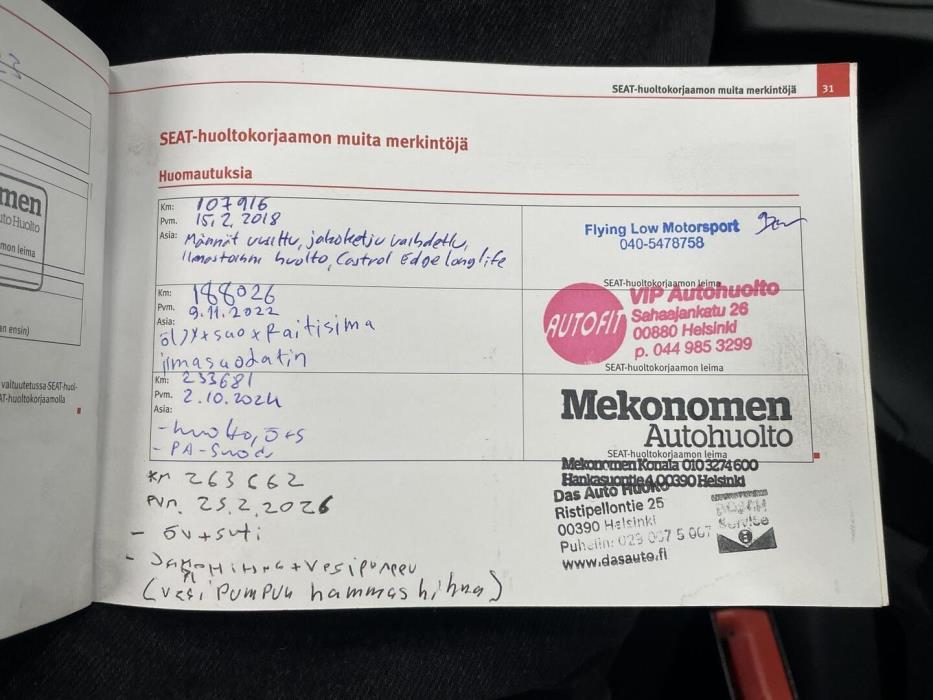 SEAT-huoltokorjaamon muita merkintöjä 31
SEAT-huoltokorjaamon muita merkintöjä
Huomautuksia
Km: 107916
Pvm. 15.2.2018
Asia: Männät uusittu, jakoketju vaihdettu,
ilmastoinnin huolto, Castrol Edge longlife
Flying Low Motorsport
040-5478758
SEAT-huoltokorjaamon leima
Km: 188026
Pvm. 9.11.2022
Asia:
öljy+suo+Raitisima
ilmasuodatin
AUTOFIT
VIP Autohuolto
Sahaajankatu 26
00880 Helsinki
p. 044 985 3299
SEAT-huoltokorjaamon leima
Km: 233681
Pvm. 2.10.2024
Asia:
-huolto, ö+s
-PA-Suod
Mekonomen
Autohuolto
SEAT-huoltokorjaamon leima
Mekonomen Konala 010 3274600
Hankasuontie 4, 00390 Helsinki
KM 263662
PVM. 25.2.2026
- öv+suti
- +Vesipumppu
(vesipumpun hammashihna)
Das Auto Huolto
Ristipellontie 25
00390 Helsinki
Puhelin: 029 007 5 007
www.dasauto.fi
BOSCH
Service
men
uto Huolto
mon leima
an ensin)
valtuutetussa SEAT-huol-
AT-huoltokorjaamolla